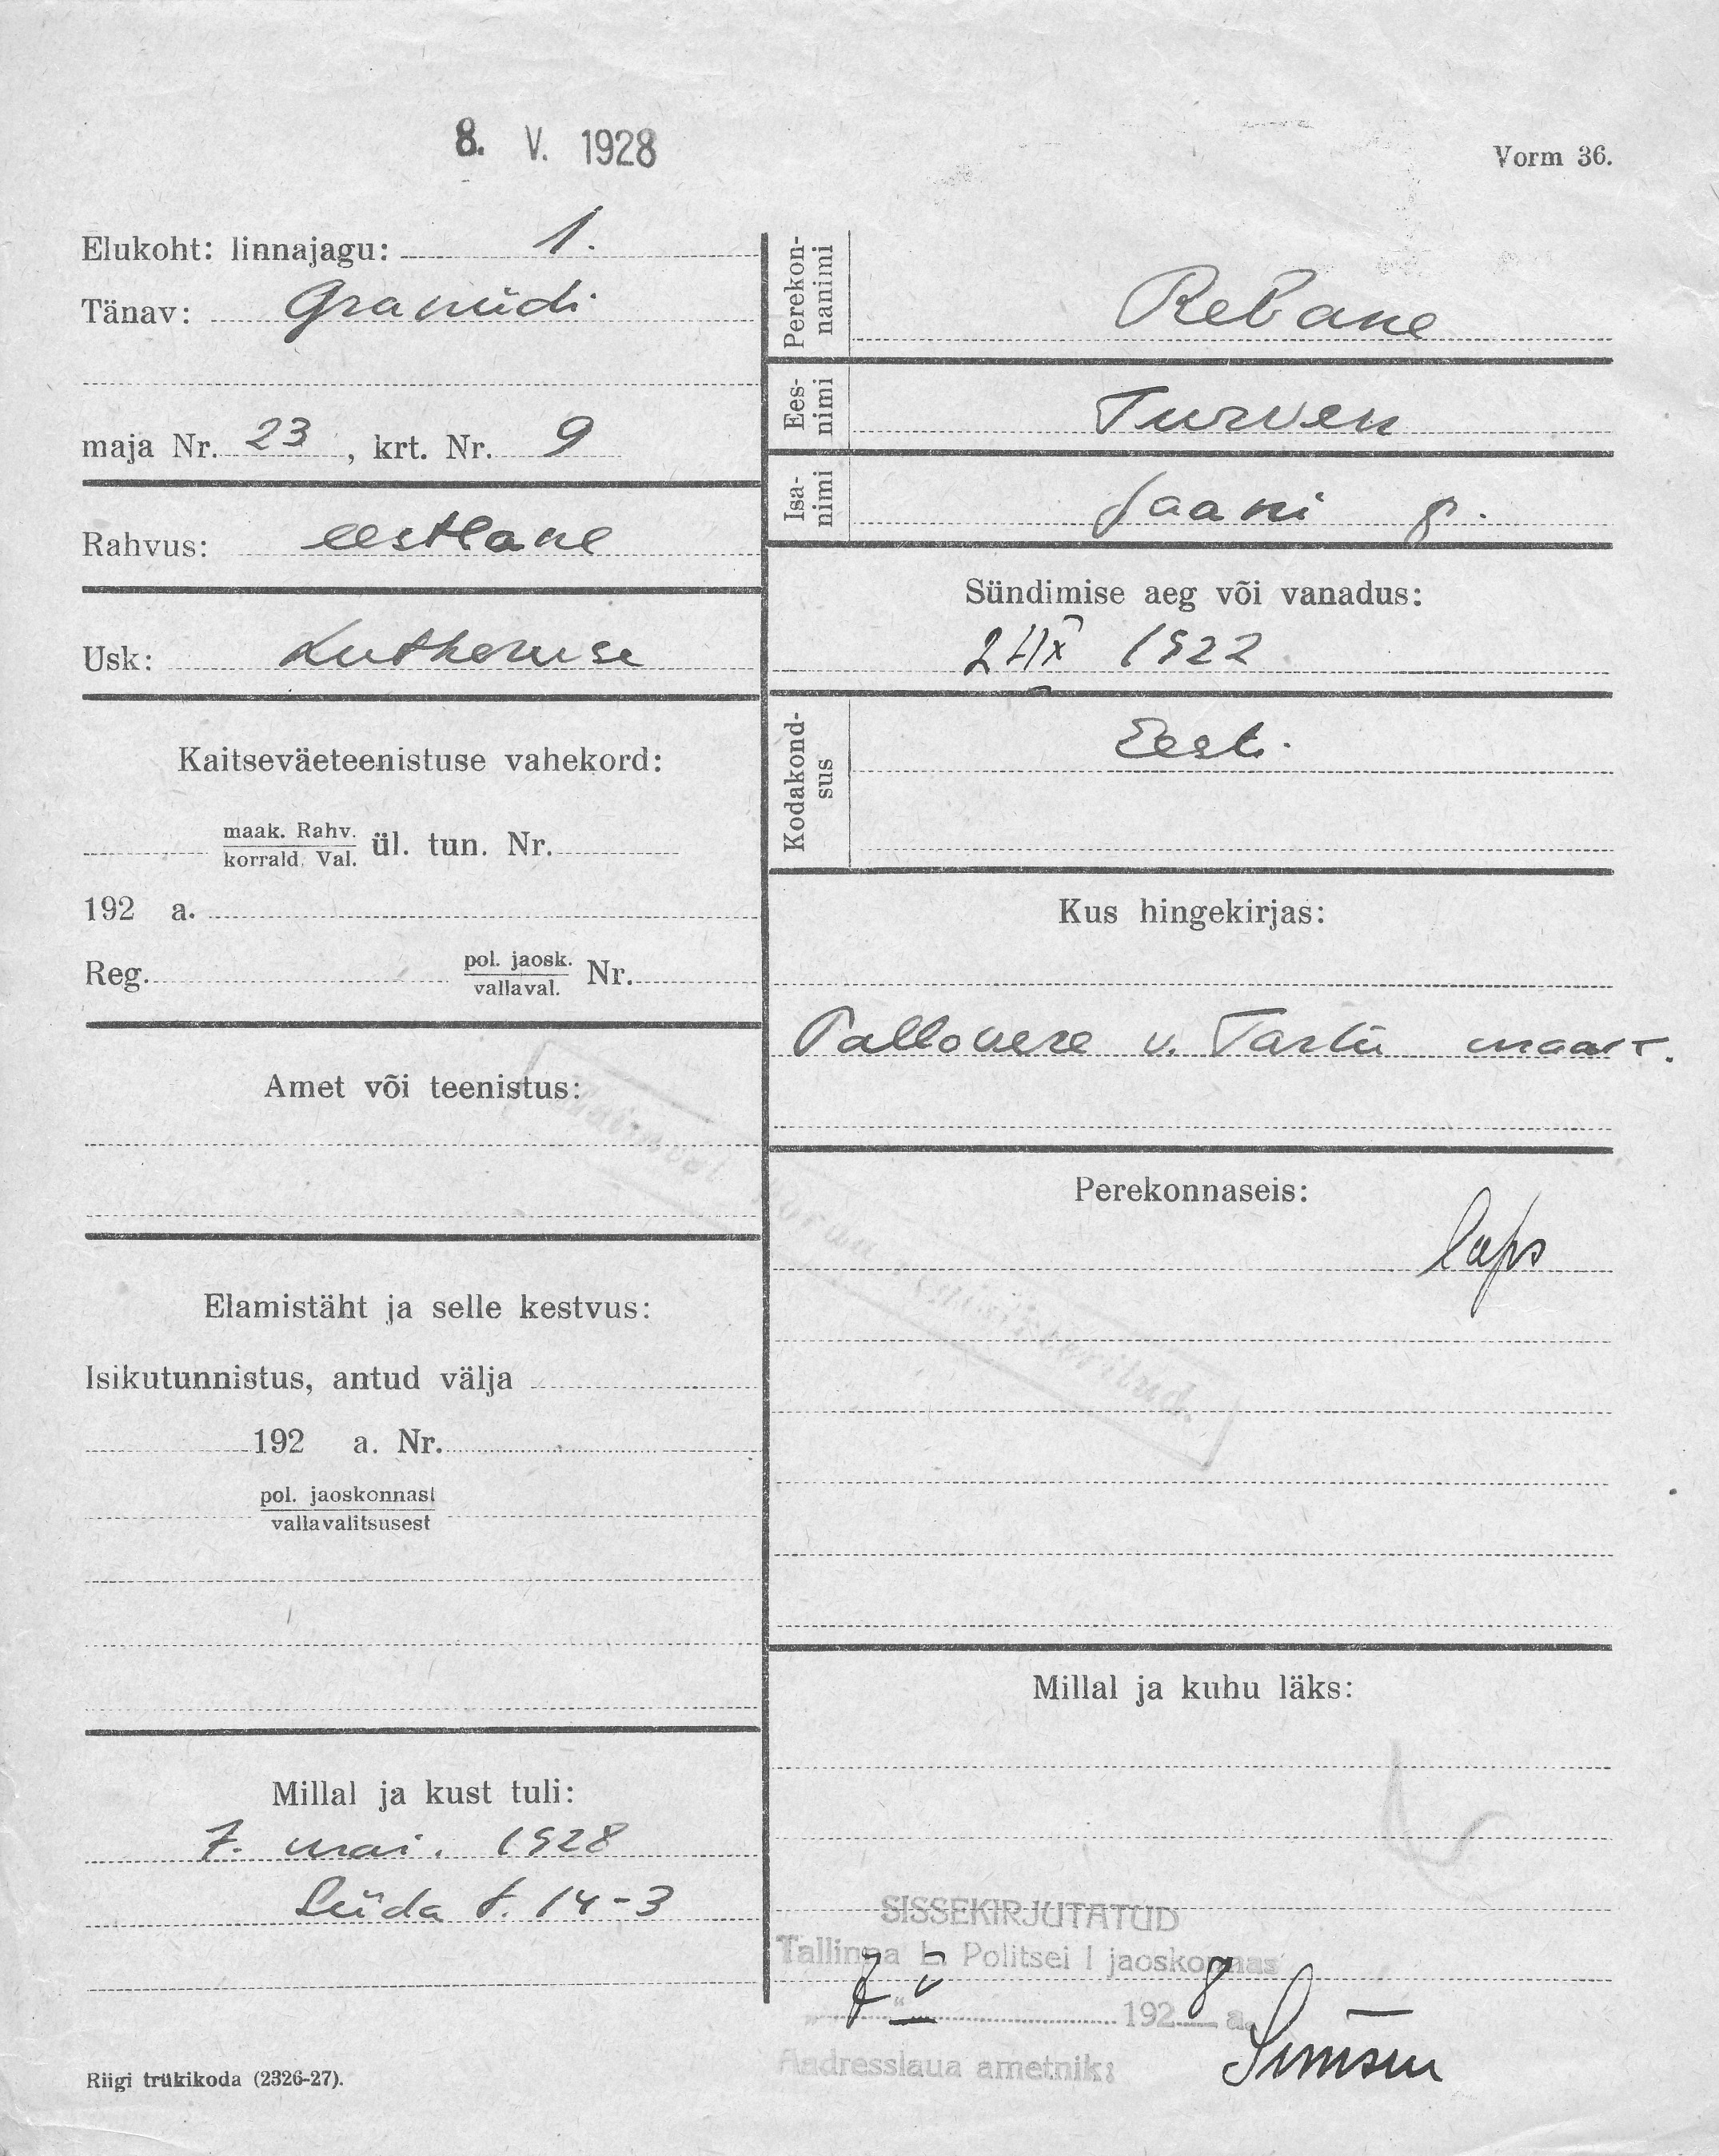 8. V. 1928
Vorm 36.
Elukoht: linnajagu: 1.
Tänav: Graniidi
maja Nr. 23, krt. Nr. 9
Rahvus: eestlane
Usk: Lutheruse
Kaitseväeteenistuse vahekord:
maak. Rahv.
korrald. Val. ül. tun. Nr.
192 a.
Reg. pol. jaosk.
vallaval. Nr.
Amet või teenistus:
Elamistäht ja selle kestvus:
Isikutunnistus, antud välja
192 a. Nr.
pol. jaoskonnast
vallavalitsusest
Millal ja kust tuli:
7. mai. 1928
Süda t. 14-3
Riigi trükikoda (2326-27).
Perekon-
nanimi Rebane
Ees-
nimi Turven
Isa-
nimi Jaani p.
Sündimise aeg või vanadus:
1922
Kodakond-
sus Eesti
Kus hingekirjas:
v. Tartu maak.
Perekonnaseis:
laps
Millal ja kuhu läks:
SISSEKIRJUTATUD
Tallinna L. Politsei I jaoskonnas
7 V 1928 a.
Aadresslaua ametnik: